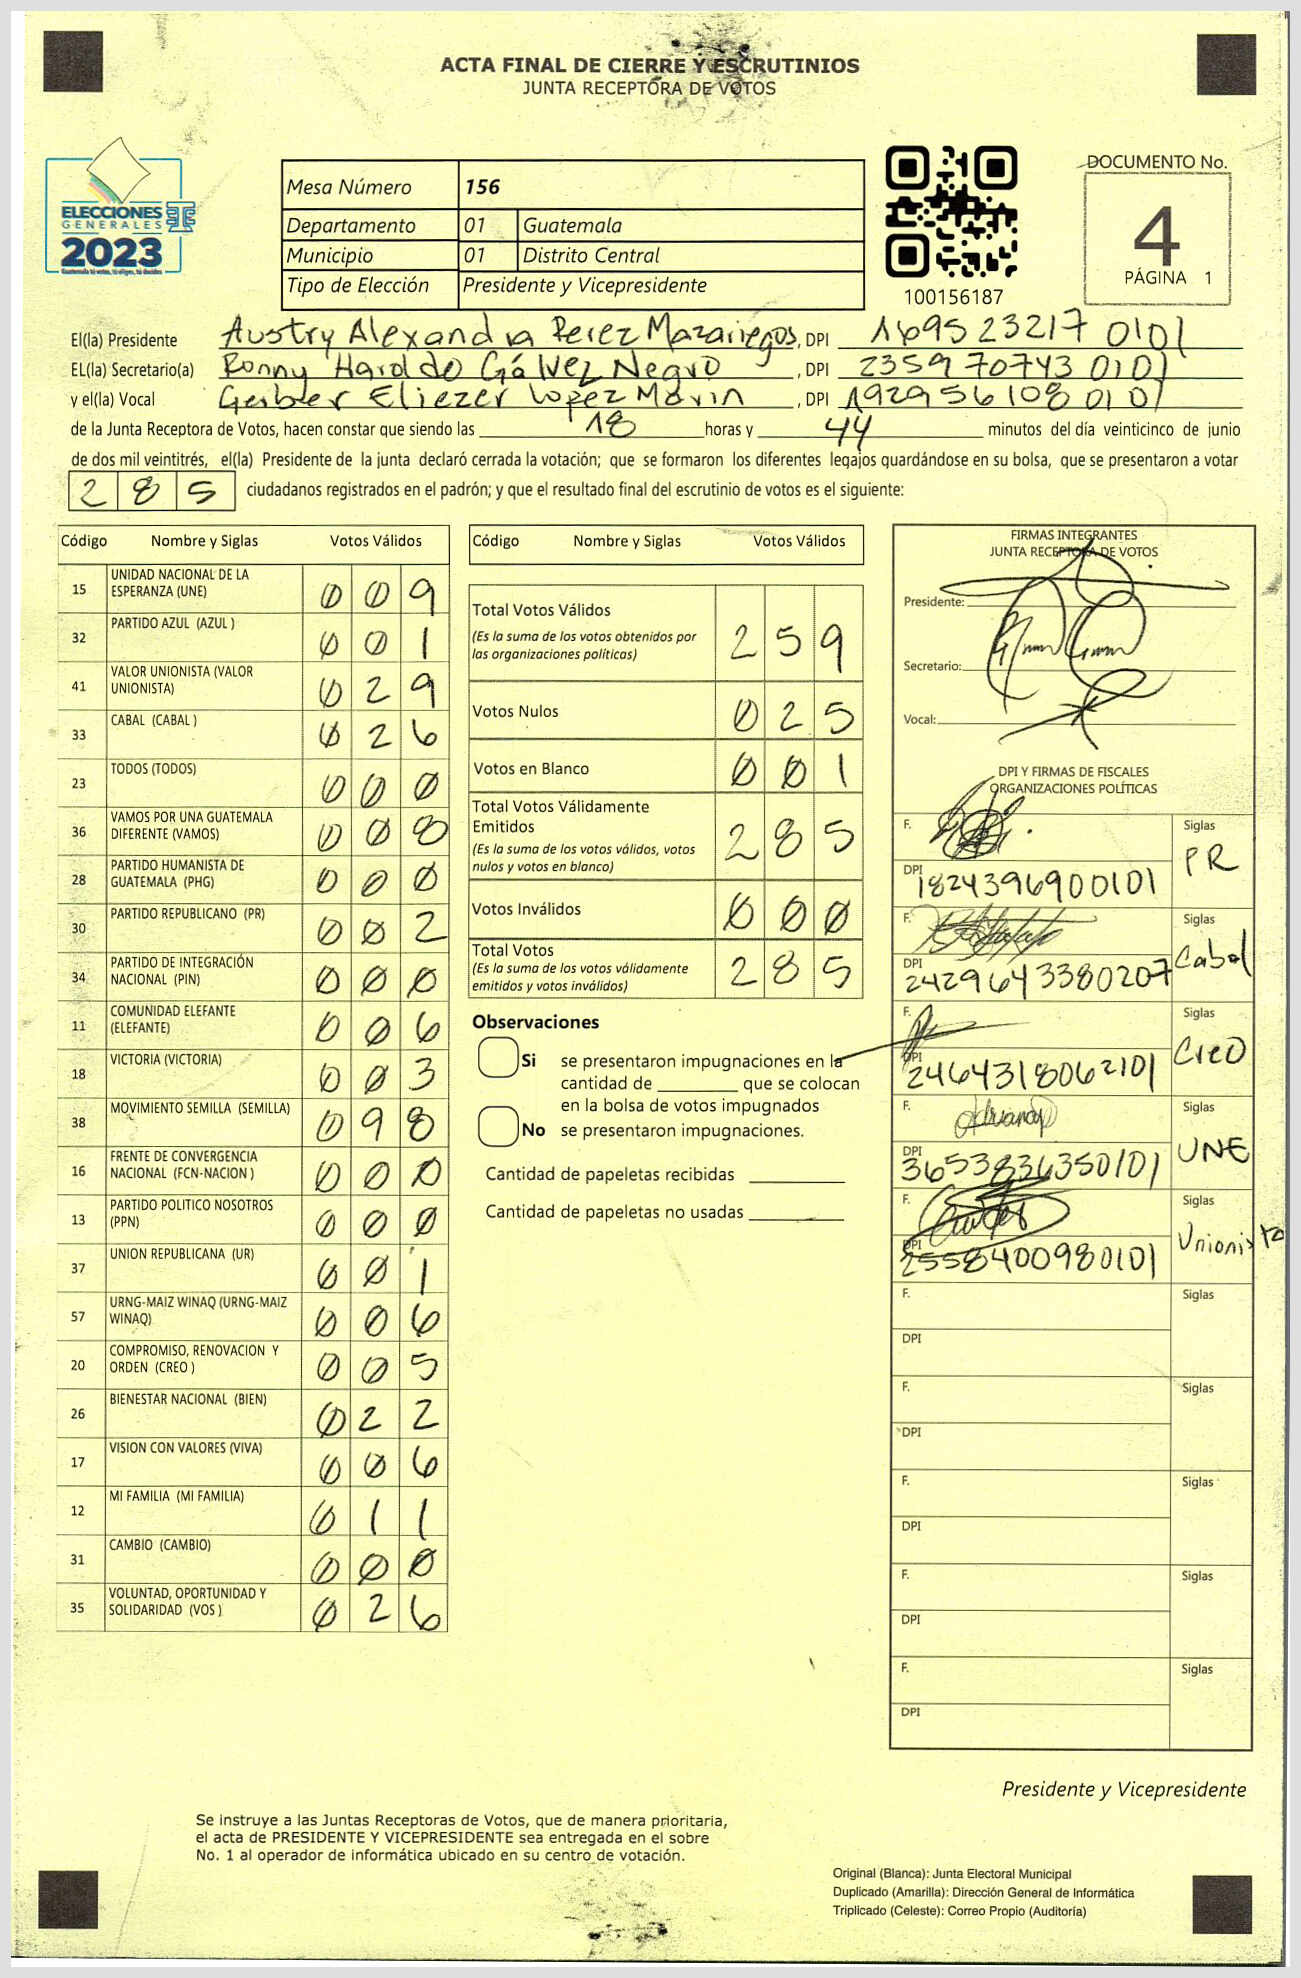 ACTA FINAL DE CIERRE Y ESCRUTINIOS
JUNTA RECEPTORA DE VOTOS
ELECCIONES
GENERALES
2023
Guatemala tú votas, tú eliges, tú decides
Mesa Número 156
Departamento 01 Guatemala
Municipio 01 Distrito Central
Tipo de Elección Presidente y Vicepresidente
100156187
DOCUMENTO No.
4
PÁGINA 1
El(la) Presidente Austry Alexandra Perez Mazariegos, DPI 169523217 0101
EL(la) Secretario(a) Ronny Haroldo Gálvez Negro, DPI 235970743 0101
y el(la) Vocal Gerber Eliezer Lopez Marin, DPI 192956108 0101
de la Junta Receptora de Votos, hacen constar que siendo las 18 horas y 44 minutos del día veinticinco de junio
de dos mil veintitrés, el(la) Presidente de la junta declaró cerrada la votación; que se formaron los diferentes legajos guardándose en su bolsa, que se presentaron a votar
285 ciudadanos registrados en el padrón; y que el resultado final del escrutinio de votos es el siguiente:
Código Nombre y Siglas Votos Válidos
15 UNIDAD NACIONAL DE LA ESPERANZA (UNE) 0 0 9
32 PARTIDO AZUL (AZUL ) 0 0 1
41 VALOR UNIONISTA (VALOR UNIONISTA) 0 2 9
33 CABAL (CABAL ) 0 2 6
23 TODOS (TODOS) 0 0 0
36 VAMOS POR UNA GUATEMALA DIFERENTE (VAMOS) 0 0 8
28 PARTIDO HUMANISTA DE GUATEMALA (PHG) 0 0 0
30 PARTIDO REPUBLICANO (PR) 0 0 2
34 PARTIDO DE INTEGRACIÓN NACIONAL (PIN) 0 0 0
11 COMUNIDAD ELEFANTE (ELEFANTE) 0 0 6
18 VICTORIA (VICTORIA) 0 0 3
38 MOVIMIENTO SEMILLA (SEMILLA) 0 9 8
16 FRENTE DE CONVERGENCIA NACIONAL (FCN-NACION ) 0 0 0
13 PARTIDO POLITICO NOSOTROS (PPN) 0 0 0
37 UNION REPUBLICANA (UR) 0 0 1
57 URNG-MAIZ WINAQ (URNG-MAIZ WINAQ) 0 0 6
20 COMPROMISO, RENOVACION Y ORDEN (CREO ) 0 0 5
26 BIENESTAR NACIONAL (BIEN) 0 2 2
17 VISION CON VALORES (VIVA) 0 0 6
12 MI FAMILIA (MI FAMILIA) 0 1 1
31 CAMBIO (CAMBIO) 0 0 0
35 VOLUNTAD, OPORTUNIDAD Y SOLIDARIDAD (VOS ) 0 2 6
Código Nombre y Siglas Votos Válidos
Total Votos Válidos 2 5 9
(Es la suma de los votos obtenidos por
las organizaciones políticas)
Votos Nulos 0 2 5
Votos en Blanco 0 0 1
Total Votos Válidamente
Emitidos 2 8 5
(Es la suma de los votos válidos, votos
nulos y votos en blanco)
Votos Inválidos 0 0 0
Total Votos 2 8 5
(Es la suma de los votos válidamente
emitidos y votos inválidos)
Observaciones
Si se presentaron impugnaciones en la
cantidad de ________ que se colocan
en la bolsa de votos impugnados
No se presentaron impugnaciones.
Cantidad de papeletas recibidas
Cantidad de papeletas no usadas
FIRMAS INTEGRANTES
JUNTA RECEPTORA DE VOTOS
Presidente:
Secretario:
Vocal:
DPI Y FIRMAS DE FISCALES
ORGANIZACIONES POLÍTICAS
F. Siglas PR
DPI 1824396900101
F. Siglas Cabal
DPI 2429643380207
F. Siglas Creo
DPI 2464318062101
F. Siglas UNE
DPI 3653836350101
F. Siglas Unionista
DPI 2558400980101
F. Siglas
DPI
F. Siglas
DPI
F. Siglas
DPI
F. Siglas
DPI
F. Siglas
DPI
Presidente y Vicepresidente
Se instruye a las Juntas Receptoras de Votos, que de manera prioritaria,
el acta de PRESIDENTE Y VICEPRESIDENTE sea entregada en el sobre
No. 1 al operador de informática ubicado en su centro de votación.
Original (Blanca): Junta Electoral Municipal
Duplicado (Amarilla): Dirección General de Informática
Triplicado (Celeste): Correo Propio (Auditoría)